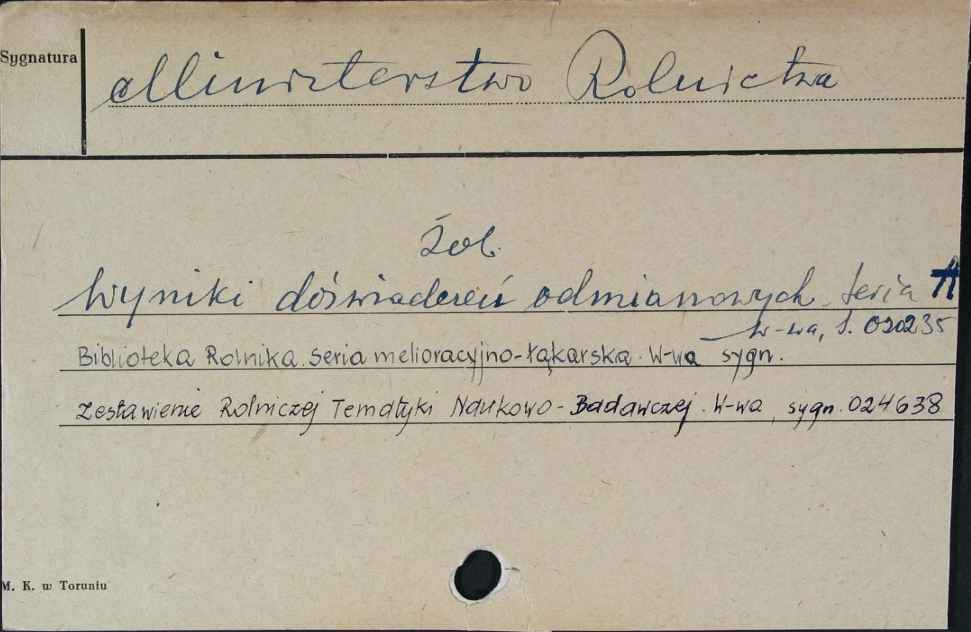 Sygnatura
Ministerstwo Rolnictwa
Zob.
Wyniki doświadczeń odmianowych. Seria A
W-wa, S. 020235
Biblioteka Rolnika. Seria melioracyjno-łąkarska. W-wa sygn.
Zestawienie Rolniczej Tematyki Naukowo-Badawczej. W-wa, sygn. 024638
M. K. w Toruniu